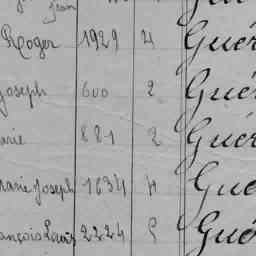 Jean
Roger 1929 4 Guér
Joseph 600 2 Gué
arie 881 2 Guér
Marie Joseph 1634 4 Gue
ançois Louis 2224 5 Gué